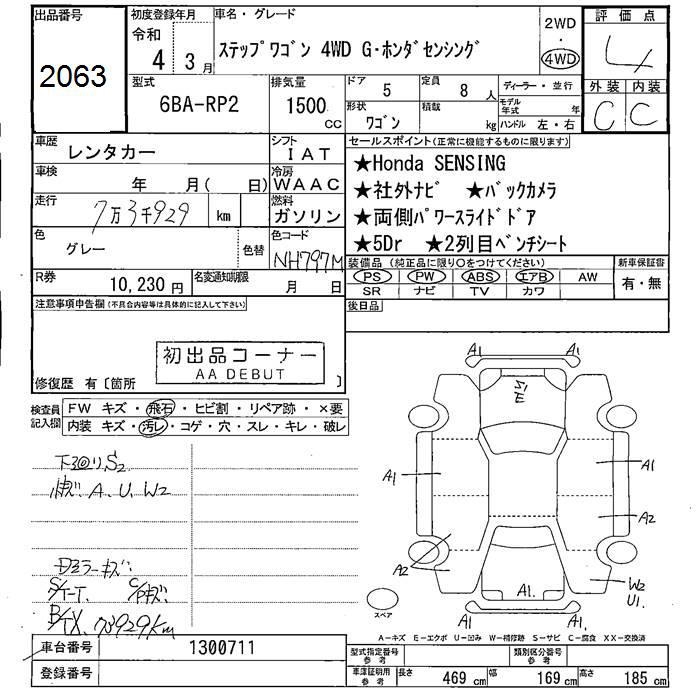 出品番号
2063
初度登録年月
令和
4 3月
車名・グレード
ステップワゴン 4WD G・ホンダセンシング
2WD
・
4WD
評価点
4
外装 内装
C C
型式
6BA-RP2
排気量
1500
cc
ドア 5
定員 8 人
ディーラー・並行
形状 ワゴン
積載 kg
モデル年式 年
ハンドル 左・右
車歴
レンタカー
シフト
IAT
車検
年 月( 日)
冷房
WAAC
走行
7万3千929 km
燃料
ガソリン
色
グレー
色替
色コード
NH797M
R券
10,230 円
名変通知期限
月 日
セールスポイント(正常に機能するものに限ります)
★Honda SENSING
★社外ナビ ★バックカメラ
★両側パワースライドドア
★5Dr ★2列目ベンチシート
装備品(純正品に限り○をつけてください)
PS PW ABS エアB AW
SR ナビ TV カワ
新車保証書
有・無
後日品
注意事項申告欄(不具合内容等は具体的に記入して下さい)
初出品コーナー
AA DEBUT
修復歴 有〔箇所 〕
検査員
記入欄
FW キズ・飛石・ヒビ割・リペア跡・×要
内装 キズ・汚レ・コゲ・穴・スレ・キレ・破レ
下廻り、S2
A、U、W2
Dミラーキズ
78929km
A1 A1
S1
E
A1
A1
A2
A2
A1.
W2
U1.
A1 A1
スペア
A―キズ E―エクボ U―凹み W―補修跡 S―サビ C―腐食 XX―交換済
車台番号 1300711
登録番号
型式指定番号
参考
類別区分番号
参考
車庫証明用
参考
長さ 469 cm 幅 169 cm 高さ 185 cm